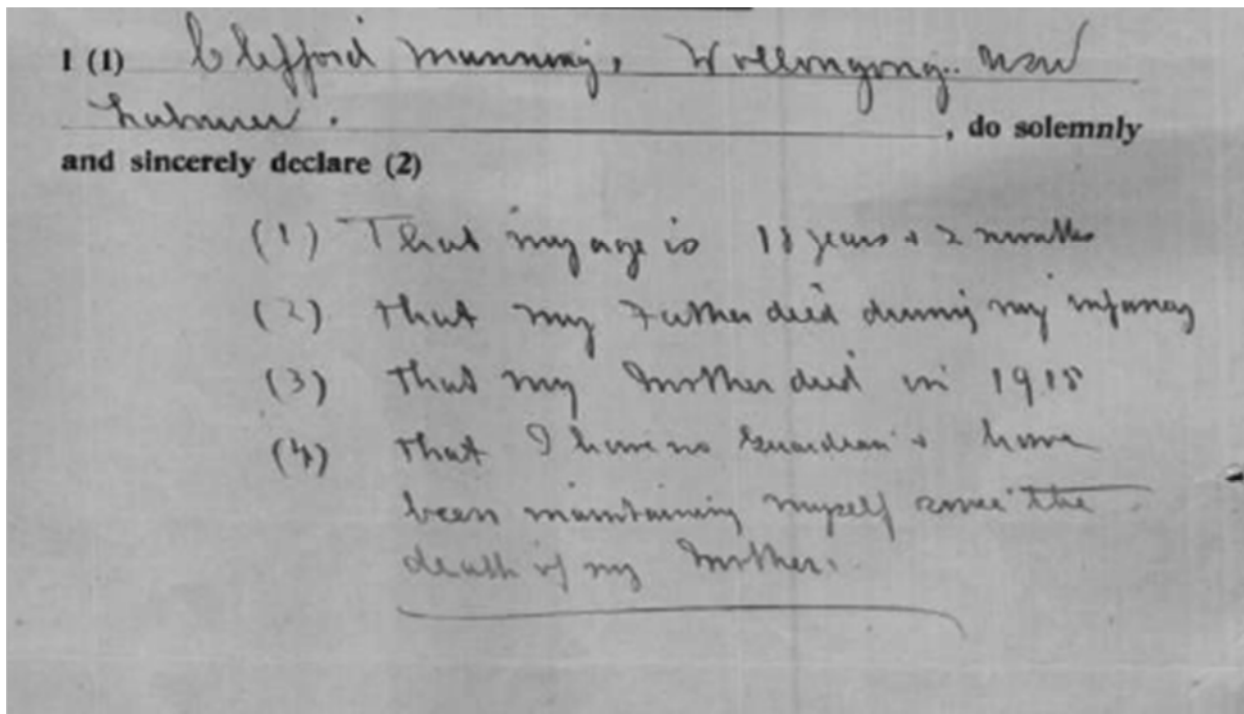 I (1) Clifford Manning, Wollongong. NSW
Labourer.
, do solemnly
and sincerely declare (2)
(1) That my age is 18 years + 2 months
(2) That my Father died during my infancy
(3) That my Mother died in 1915
(4) That I have no Guardian + have
been maintaining myself since the
death of my Mother.